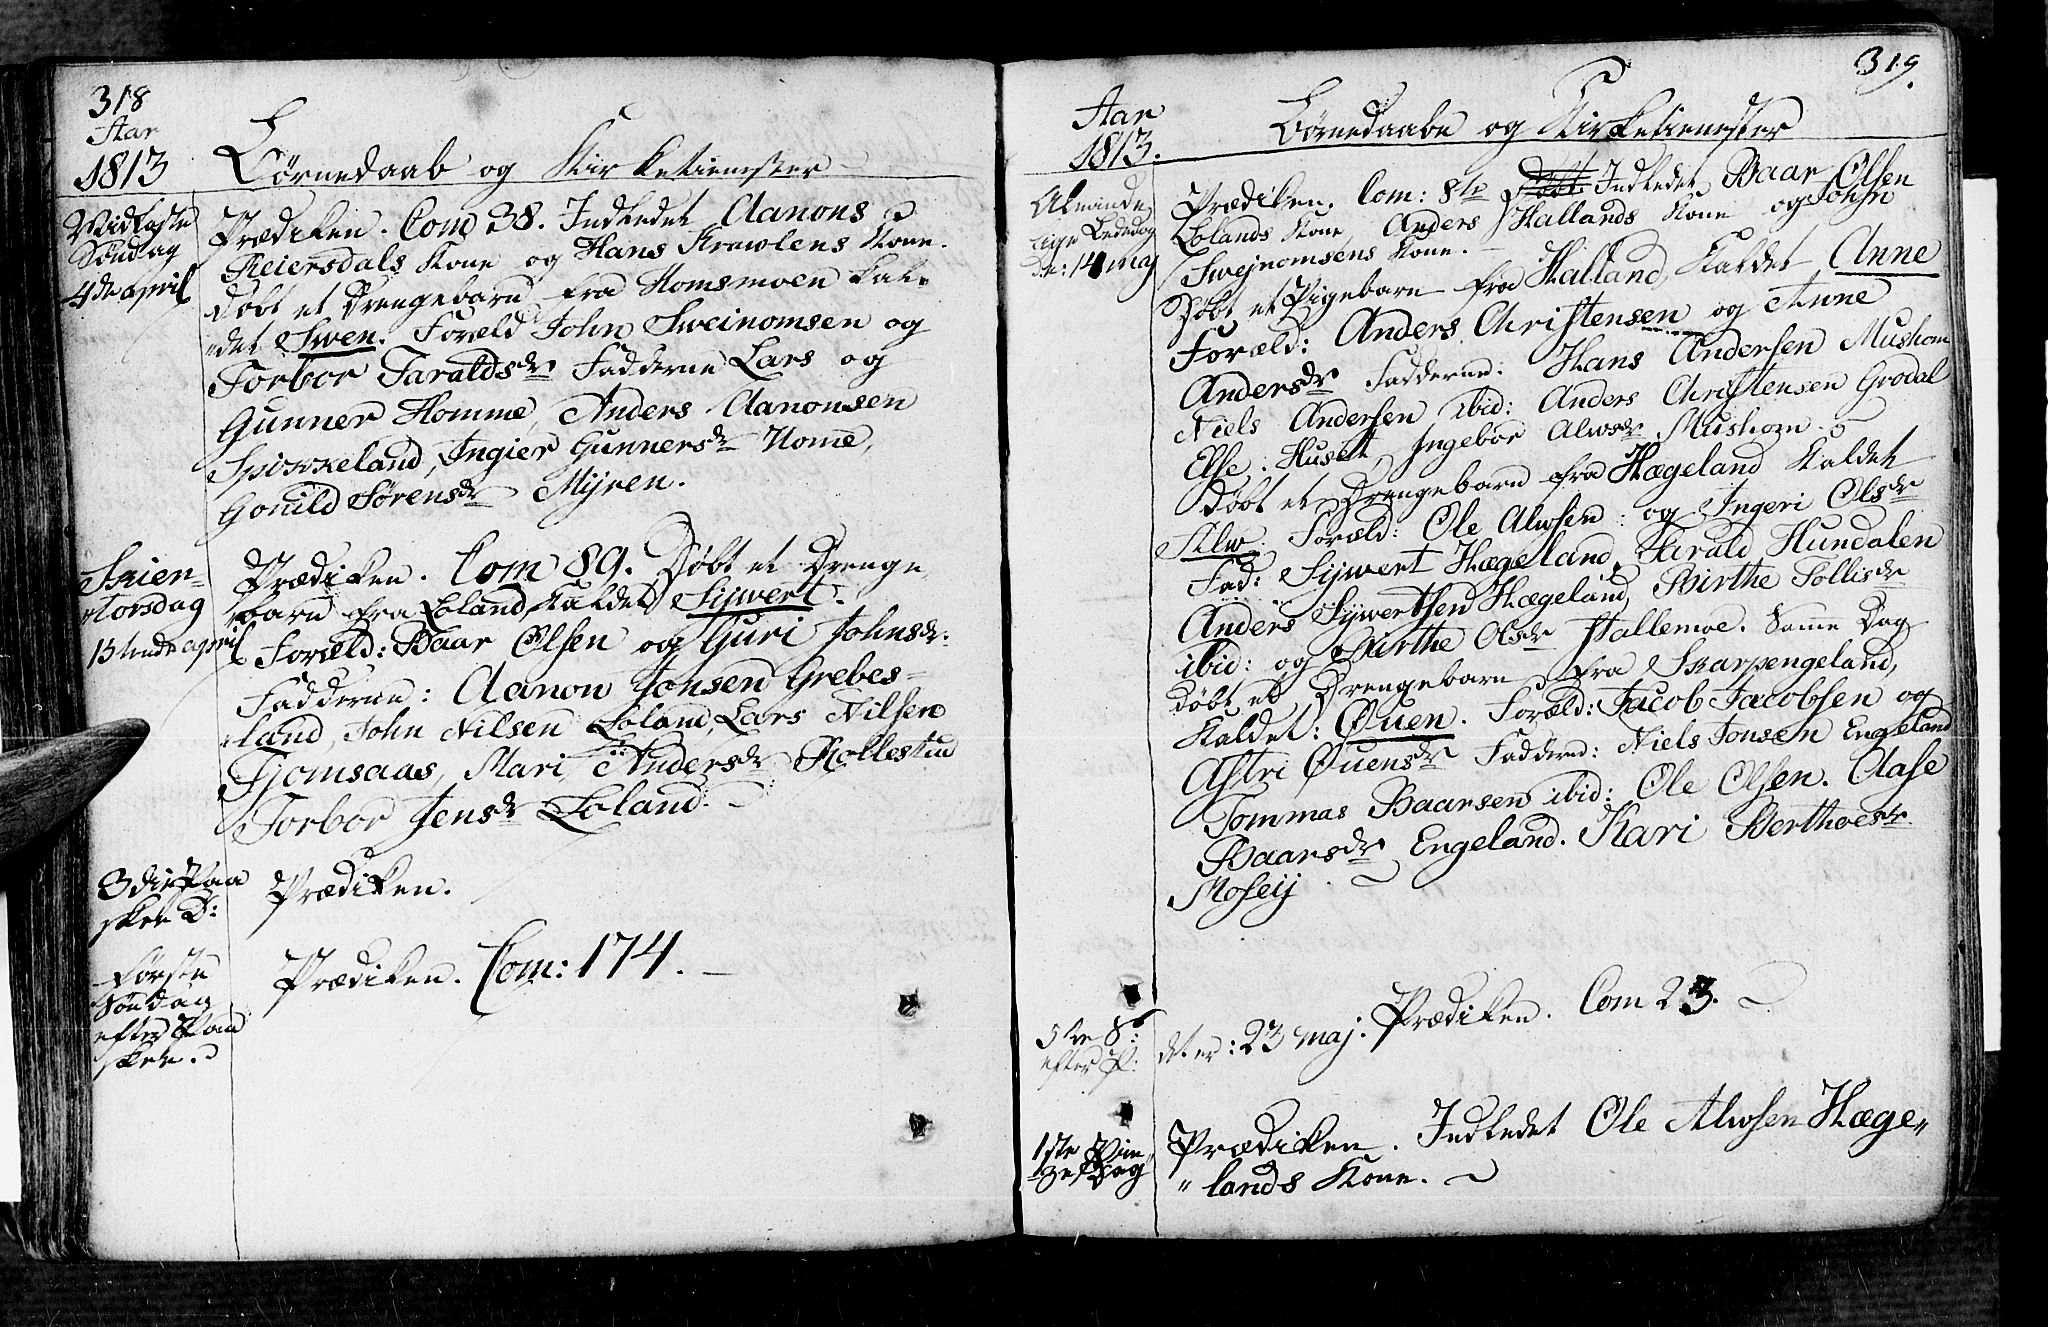 318
Aar
1813
Børnedaab og Kirketienester
Midfaste
Søndag
4de april
Prædiken. Com 38. Indledet Aanons
Reiersdals Kone og Hans Krawlens Kone.
Døbt et Drengebarn fra Homsmoen kal-
det Swen. Foræld John Sweinomsen og
Torbor Taraldsdr Fadderne Lars og
Gunner Homme, Anders Aanonsen
Spikkeland, Ingier Gunnersdr Home,
Gonild Sørensdr Mijren.
Skier-
torsdag
15tende april
Prædiken. Com 89. Døbt et Drenge
barn fra Loland, kaldet Sijwert.
Foræld: Baar Olsen og Guri Johnsdr:
Fadderne: Aanon Jonsen Grebes-
land, John Nilsen Loland, Lars Nilsen
Tjomsaas, Mari Andersdr Rollestud
Torbor Jensdr Loland.
3die Paa
ske D:
Prædiken.
Første
Søndag
efter Paa
ske.
Prædiken. Com: 174.
319.
Aar
1813.
Børnedaabe og Kirketienester
Alminde
lige Bededag
de: 14 maj
Prædiken. Com: 8te Døbt Indledet Baar Olsen
Lolands Kone, Anders Hallands Kone og John
Swejnomsens Kone.
Døbt et Pigebarn fra Halland, Kaldet Anne
Foræld: Anders Christensen og Anne
Andersdr Fadderne: Hans Andersen Mushom
Niels Andersen ibid: Anders Christensen Grodal
Else Husett, Ingebor Alwsdr Mushom.
Døbt et Drengebarn fra Hægeland Kaldet
Alw. Foræld: Ole Alwsen og Ingeri Olsdr
Fad: Sijwert Hægeland, Harald Hundalen
Anders Sijwertsen Hægeland, Birthe Tollisdr
ibid: og Birthe Olsdr Hallemoe. Samme Dag
døbt et Drengebarn fra Skarpengeland,
Kaldet: Øuen. Foræld: Jacob Jacobsen og
Astri Øuensdr Fadderne: Niels Jonsen Engeland
Tommas Baarsen ibid: Ole Olsen. Aase
Baarsdr Engeland. Kari Berthoesdr
Moseij
5te S:
efter P:
det er: 23 maj: Prædiken. Com 23.
1ste Pin
zedag
Prædiken. Indledet Ole Alwsen Hæge-
lands Kone.